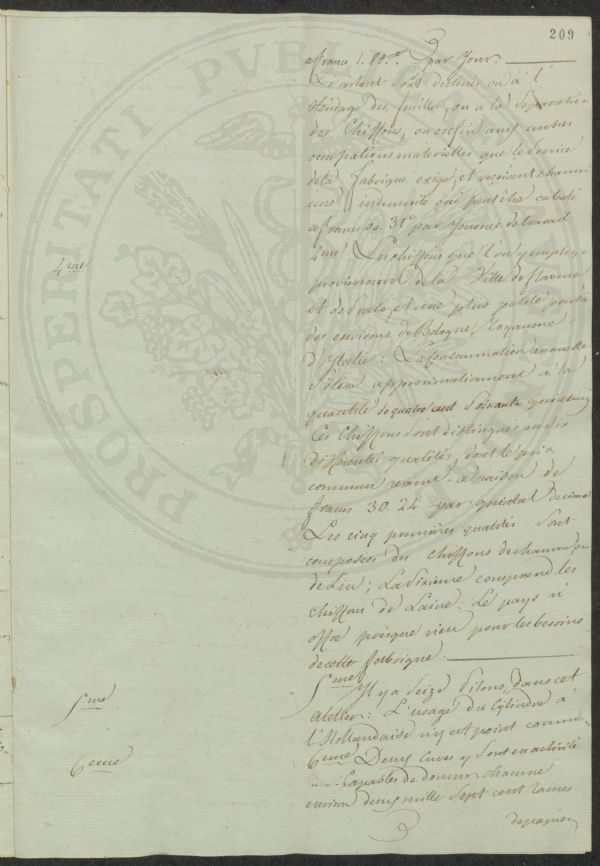 209
a francs 1. 80.c par Jour.
Le restant sont destinés ou à l'
étendage des feuilles, ou a la Séparation
des Chiffons, ou enfin aux autres
occupations materielles que le Service
de la Fabrique exige, et reçoivent chacun
une indemnité qui peut être calculé
a francs 31c par Journée de travail
4me Les chiffons que l'on y employe
4me
proviennent de la Ville de florence
et de Prato, et une plus petite partie
des environs de Bologne, Royaume
d'Italie: La Consummation annuelle
S'éleve approximativement à la
quantité de quatre cent Soixante quintaux
Ces Chiffons sont distingués en Six
différentes qualités, dont le prix
commun revient a raison de
francs 30. 24 par quintal decimal
Les cinq premières qualités Sont
composées des chiffons de chanvre, ou
de Lin; La Sixieme comprend les
chiffons de Laine: Le pays n'
offre presque rien pour les besoins
de cette fabrique.
5me Il y a Seize Pilons dans cet
5me
atelier: L'usage du Cylindre à
l'Hollandaise n'y est point connu
6eme Deux Cuves y Sont en activité
6eme
Capables de donner chacune
environ deux mille Sept cent rames
de papier,
PROSPERITATI PUBLICAE